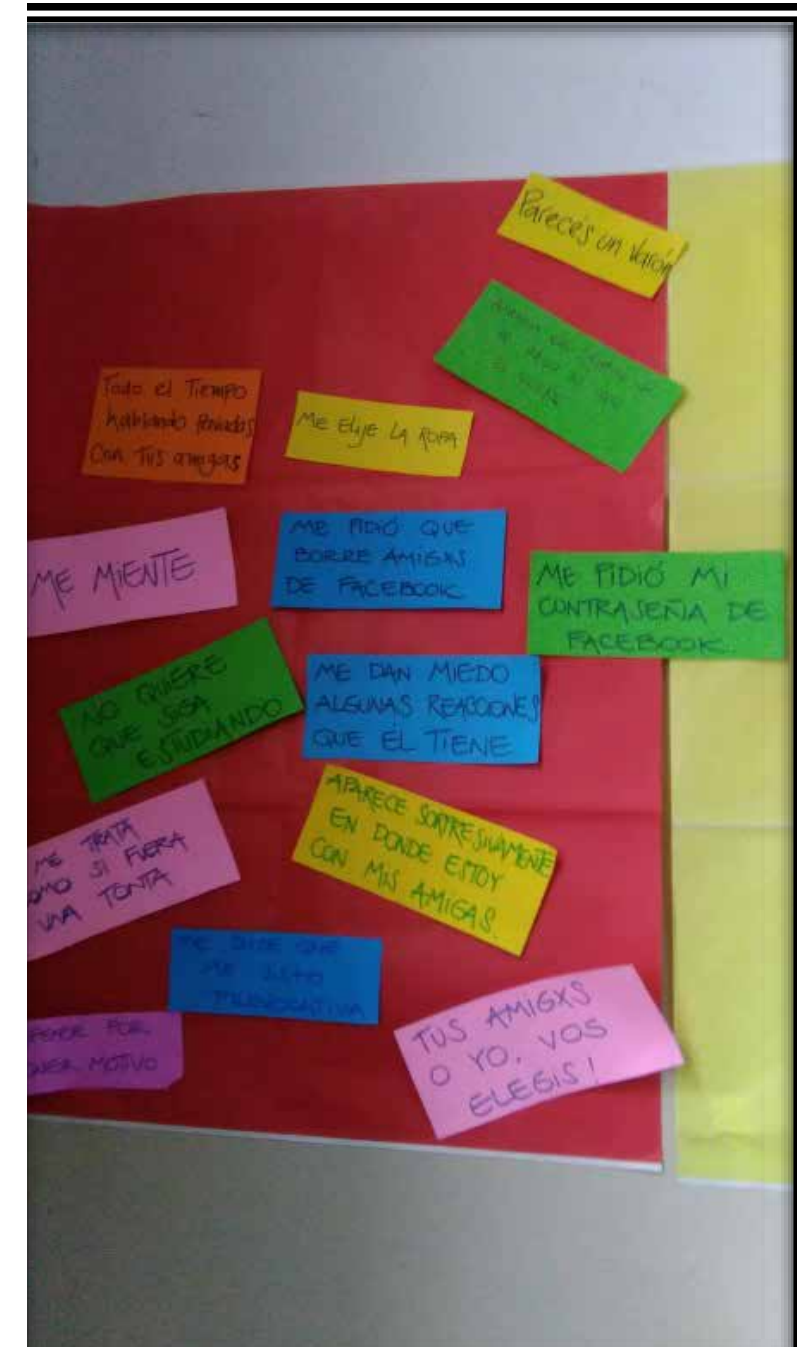 Parecés un varón!
Todo el Tiempo
hablando
Con Tus amigas
ME ELIJE LA ROPA
ME MIENTE
ME PIDIÓ QUE
BORRE AMIGXS
DE FACEBOOK
ME PIDIÓ MI
CONTRASEÑA DE
FACEBOOK.
NO QUIERE
QUE SIGA
ESTUDIANDO
ME DAN MIEDO
ALGUNAS REACCIONES
QUE EL TIENE
ME TRATA
COMO SI FUERA
UNA TONTA
APARECE SORPRESIVAMENTE
EN DONDE ESTOY
CON MIS AMIGAS.
ME DICE QUE
ME VISTO
PROVOCATIVA
POR
MOTIVO
TUS AMIGXS
O YO. VOS
ELEGIS!